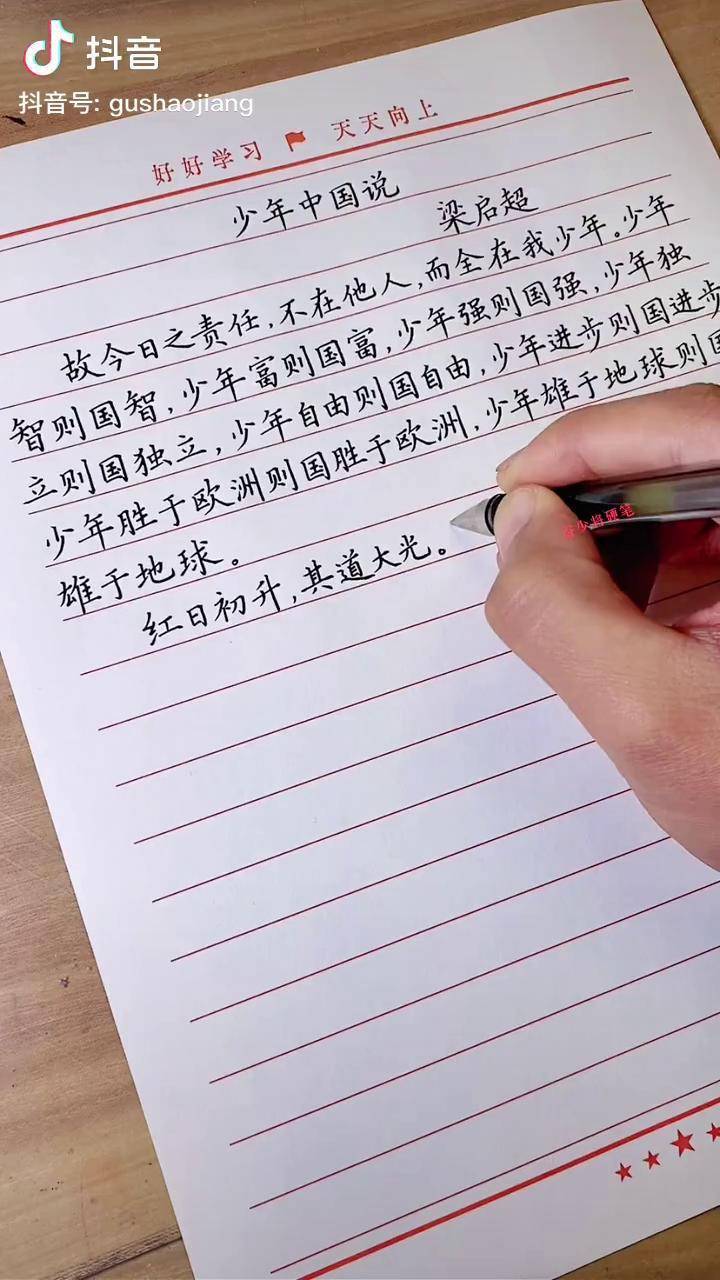 抖音
抖音号: gushaojiang
好好学习 天天向上
少年中国说
梁启超
故今日之责任,不在他人,而全在我少年。少年
智则国智,少年富则国富,少年强则国强,少年独
立则国独立,少年自由则国自由,少年进步则国进步
少年胜于欧洲则国胜于欧洲,少年雄于地球则国
雄于地球。
红日初升,其道大光。
少将硬笔